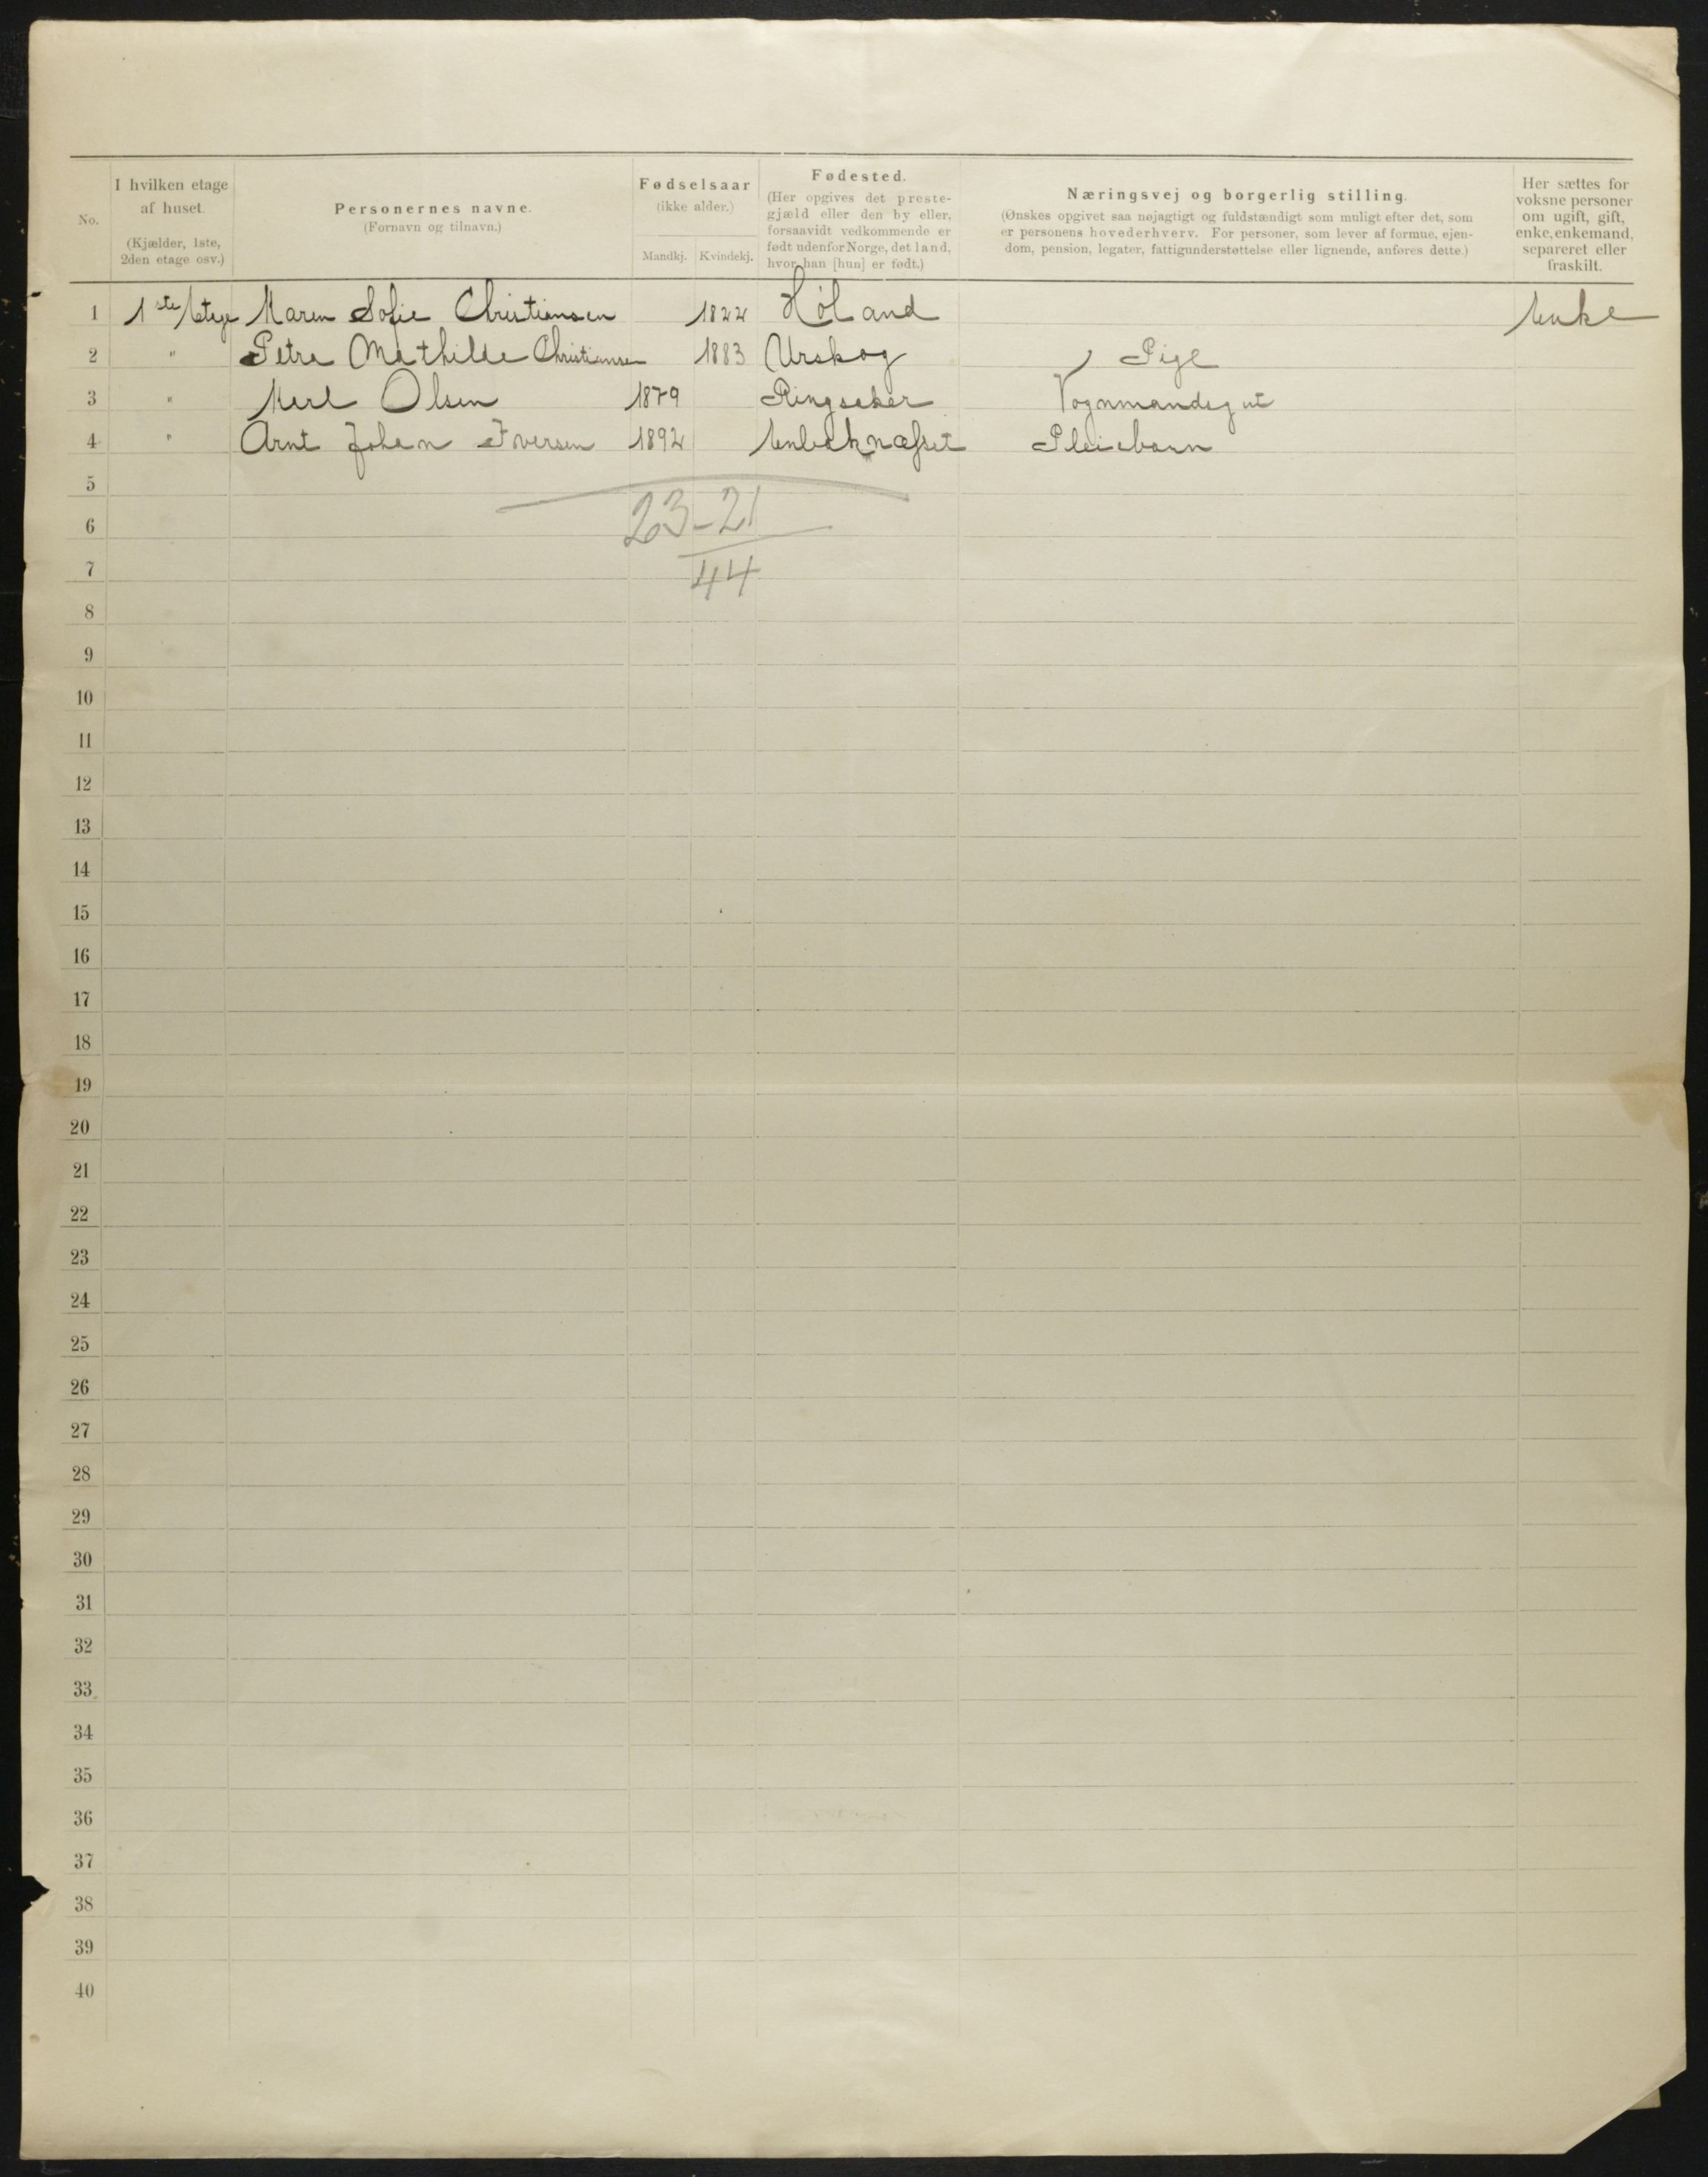 No.
I hvilken etage af huset. (Kjælder, 1ste, 2den etage osv.)
Personernes navne. (Fornavn og tilnavn.)
Fødselsaar (ikke alder.)
Mandkj. Kvindekj.
Fødested. (Her opgives det prestegjæld eller den by eller, forsaavidt vedkommende er født udenfor Norge, det land, hvor han [hun] er født.)
Næringsvej og borgerlig stilling.
(Ønskes opgivet saa nøjagtigt og fuldstændigt som muligt efter det, som er personens hovederhverv. For personer, som lever af formue, ejendom, pension, legater, fattigunderstøttelse eller lignende, anføres dette.)
Her sættes for voksne personer om ugift, gift, enke, enkemand, separeret eller fraskilt.
1 1ste Etage Maren Sofie Christiansen 1822 Høland Enke
2 " Petra Mathilde Christiansen 1883 Urskog Pige
3 " Karl Olsen 1879 Ringsaker Vognmandsgut
4 " Arnt Johan Iversen 1892 Pleiebarn
5
6 23-21
7 44
8
9
10
11
12
13
14
15
16
17
18
19
20
21
22
23
24
25
26
27
28
29
30
31
32
33
34
35
36
37
38
39
40